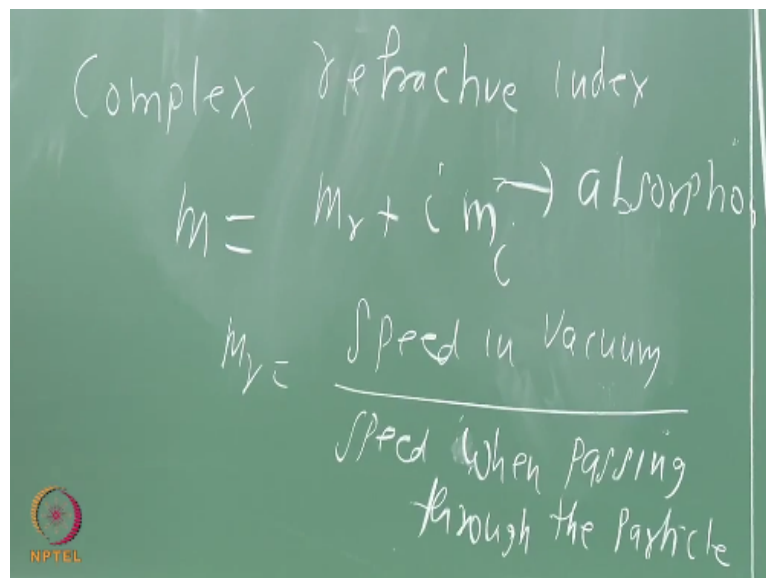 Complex refractive index
m = mr + i mi → absorptio
mr = speed in vacuum
speed when passing
through the particle
NPTEL